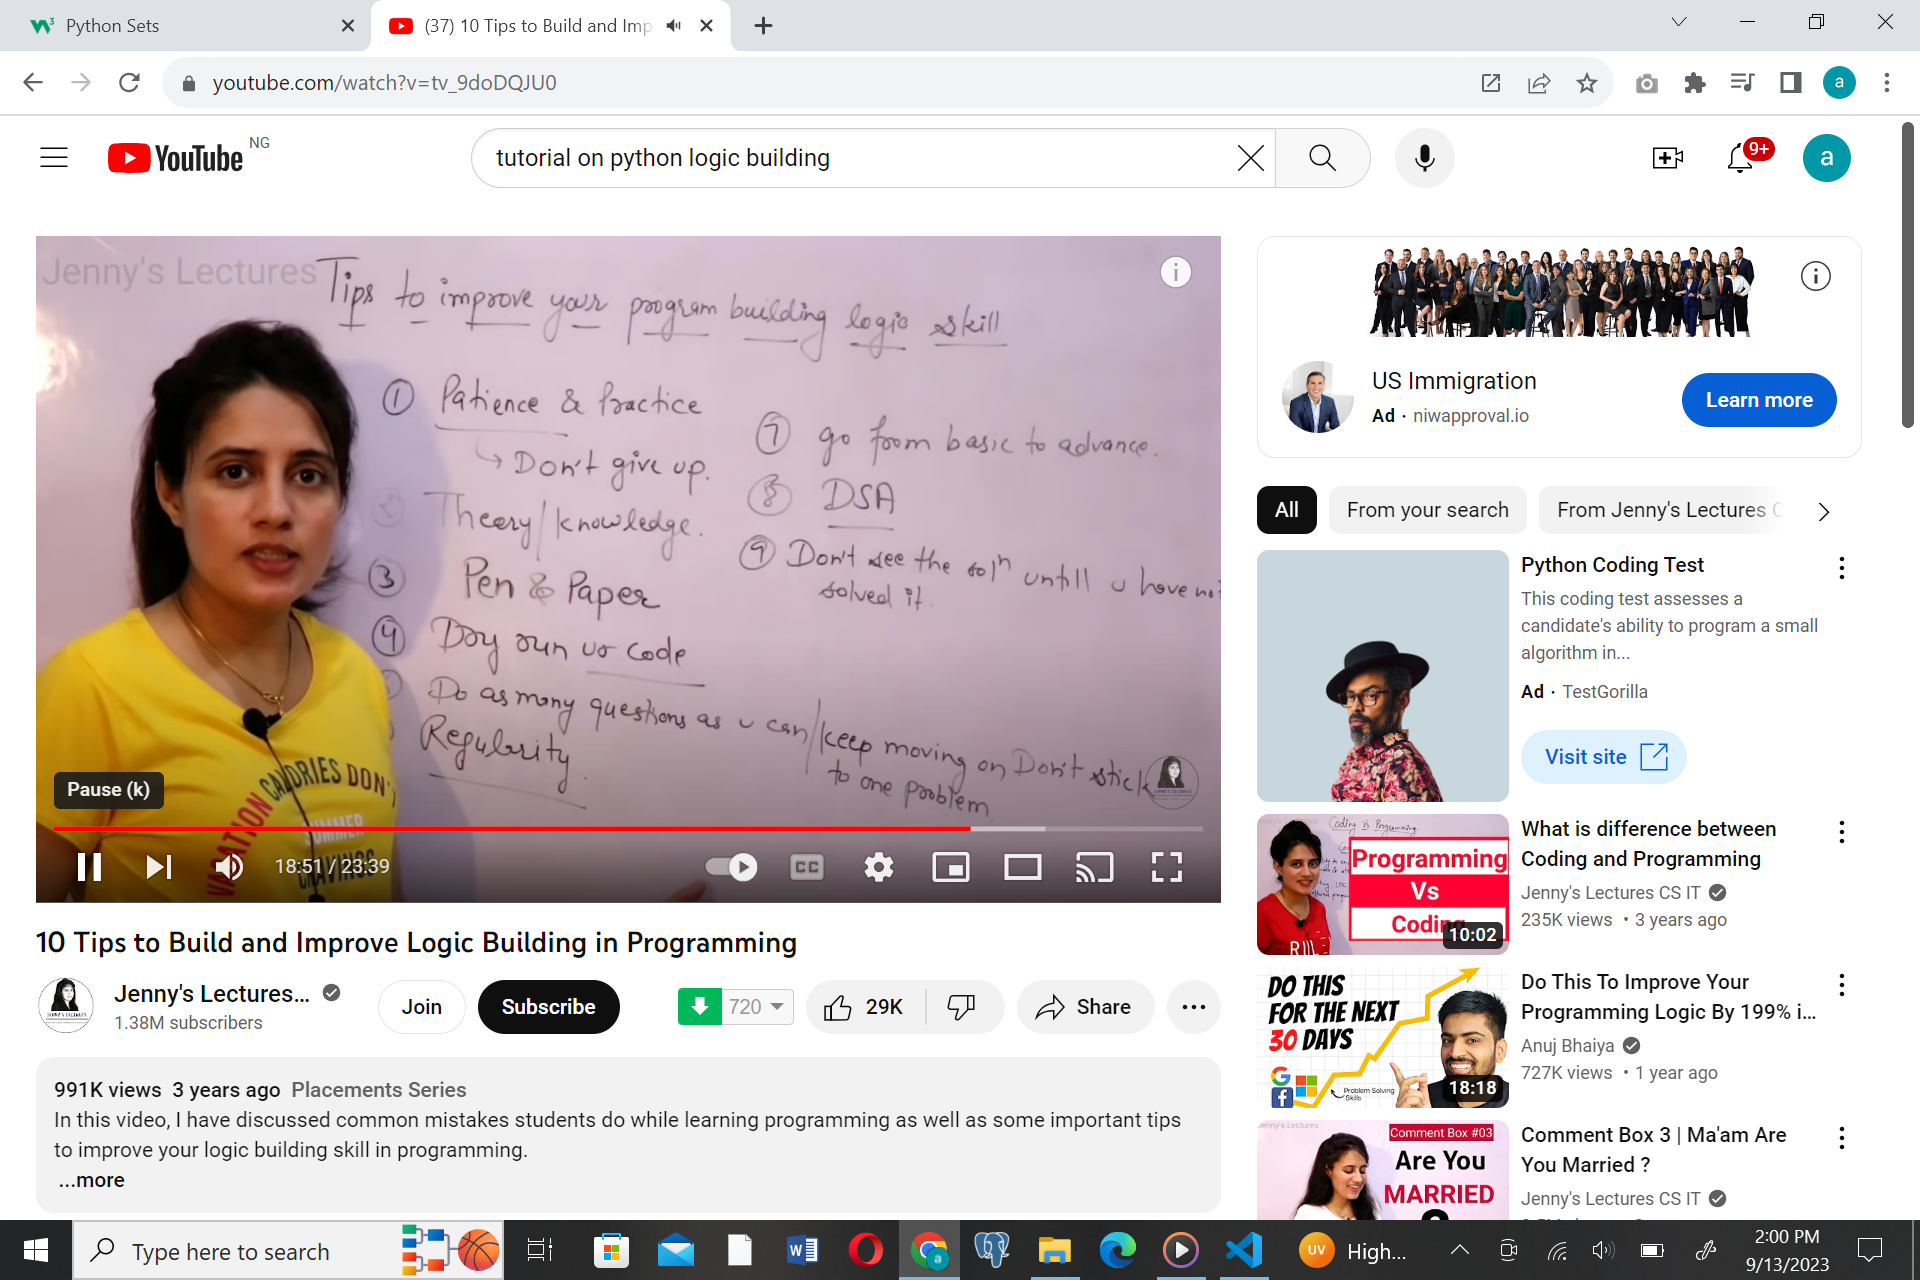 Python Sets
(37) 10 Tips to Build and Imp
youtube.com/watch?v=tv_9doDQJU0
a
YouTube NG
tutorial on python logic building
9+
a
Jenny's Lectures
Tips to improve your program building logic skill
① Patience & Practice
Don't give up.
Theory/knowledge.
③ Pen & Paper
④ Dry run ur code
Do as many questions as u can/keep moving on Don't stick
to one problem
Regularity.
⑦ go from basic to advance.
⑧ DSA
⑨ Don't see the solⁿ untill u have not
solved it.
VACATION CALORIES DON'T
SUMMER
CRAVINGS
Pause (k)
18:51 / 23:39
CC
10 Tips to Build and Improve Logic Building in Programming
Jenny's Lectures...
1.38M subscribers
Join
Subscribe
720
29K
Share
991K views 3 years ago Placements Series
In this video, I have discussed common mistakes students do while learning programming as well as some important tips
to improve your logic building skill in programming.
...more
US Immigration
Ad · niwapproval.io
Learn more
All
From your search
From Jenny's Lectures C
Python Coding Test
This coding test assesses a
candidate's ability to program a small
algorithm in...
Ad · TestGorilla
Visit site
Coding vs Programming
Programming
Vs
Coding
10:02
What is difference between
Coding and Programming
Jenny's Lectures CS IT
235K views • 3 years ago
DO THIS
FOR THE NEXT
30 DAYS
Problem Solving
Skills
18:18
Do This To Improve Your
Programming Logic By 199% i...
Anuj Bhaiya
727K views • 1 year ago
Jenny's Lectures
Comment Box #03
Are You
MARRIED
Comment Box 3 | Ma'am Are
You Married ?
Jenny's Lectures CS IT
Type here to search
UV
High...
2:00 PM
9/13/2023